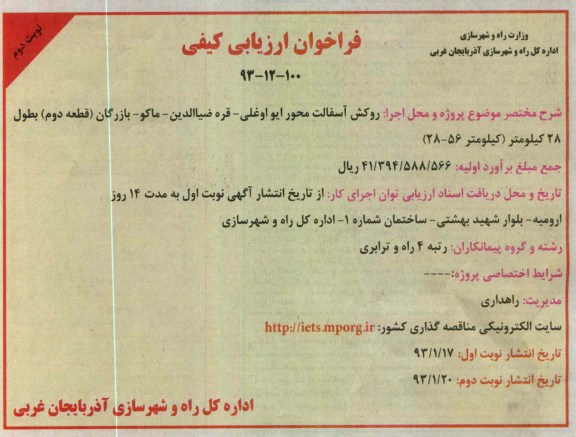 نوبت دوم
وزارت راه و شهرسازی
اداره کل راه و شهرسازی آذربایجان غربی
فراخوان ارزیابی کیفی
۹۳-۱۲-۱۰۰
شرح مختصر موضوع پروژه و محل اجرا: روکش آسفالت محور ایو اوغلی- قره ضیاالدین- ماکو- بازرگان (قطعه دوم) بطول
۲۸ کیلومتر (کیلومتر ۵۶-۲۸)
جمع مبلغ برآورد اولیه: ۴۱/۳۹۴/۵۸۸/۵۶۶ ریال
تاریخ و محل دریافت اسناد ارزیابی توان اجرای کار: از تاریخ انتشار آگهی نوبت اول به مدت ۱۴ روز
ارومیه- بلوار شهید بهشتی- ساختمان شماره ۱- اداره کل راه و شهرسازی
رشته و گروه پیمانکاران: رتبه ۴ راه و ترابری
شرایط اختصاصی پروژه:----
مدیریت: راهداری
سایت الکترونیکی مناقصه گذاری کشور: http://iets.mporg.ir
تاریخ انتشار نوبت اول: ۹۳/۱/۱۷
تاریخ انتشار نوبت دوم: ۹۳/۱/۲۰
اداره کل راه و شهرسازی آذربایجان غربی